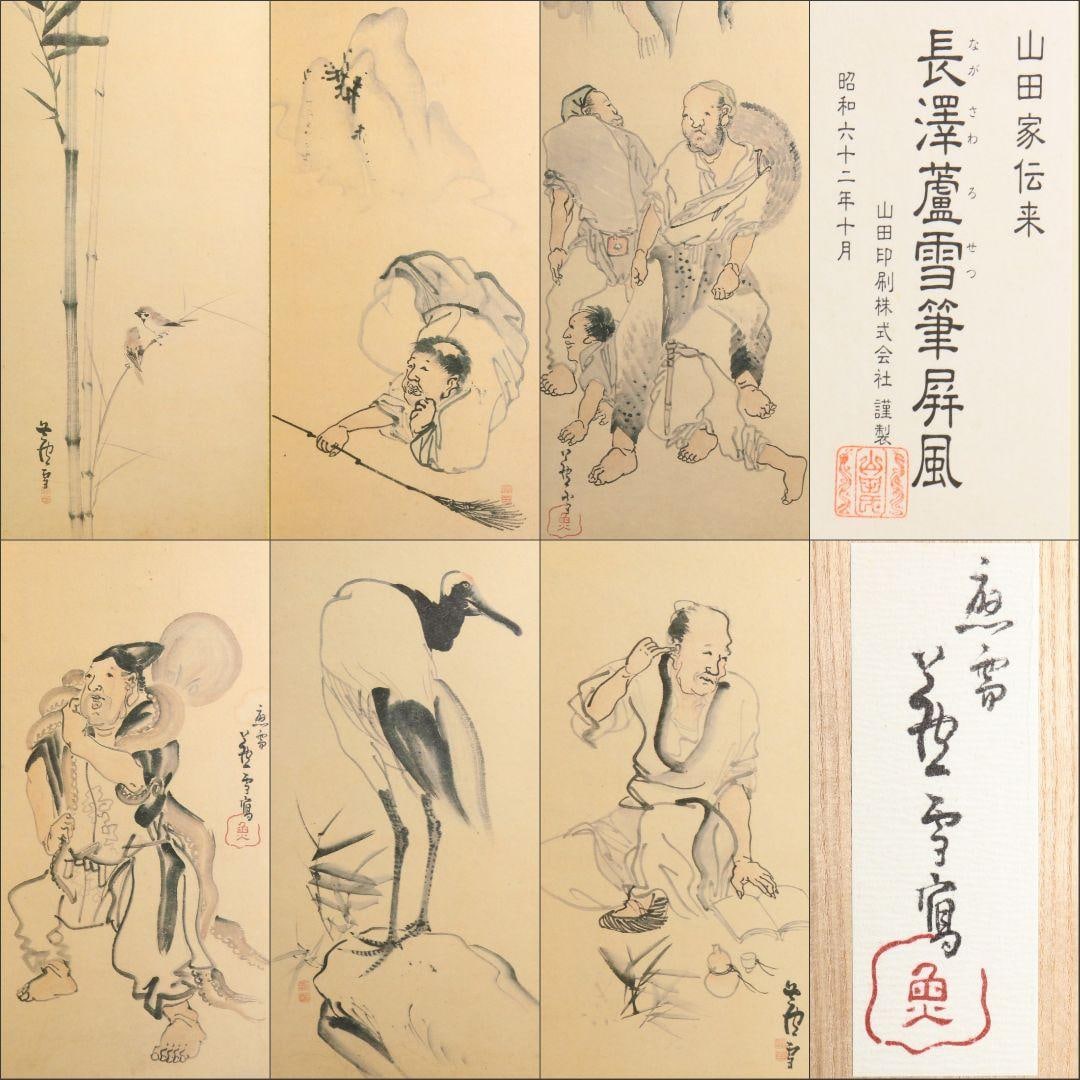 蘆雪
蘆雪
魚
山田家伝来
長澤蘆雪筆屏風
ながさわろせつ
山田印刷株式会社 謹製
昭和六十二年十月
蘆雪寫
魚
蘆雪
蘆雪寫
魚